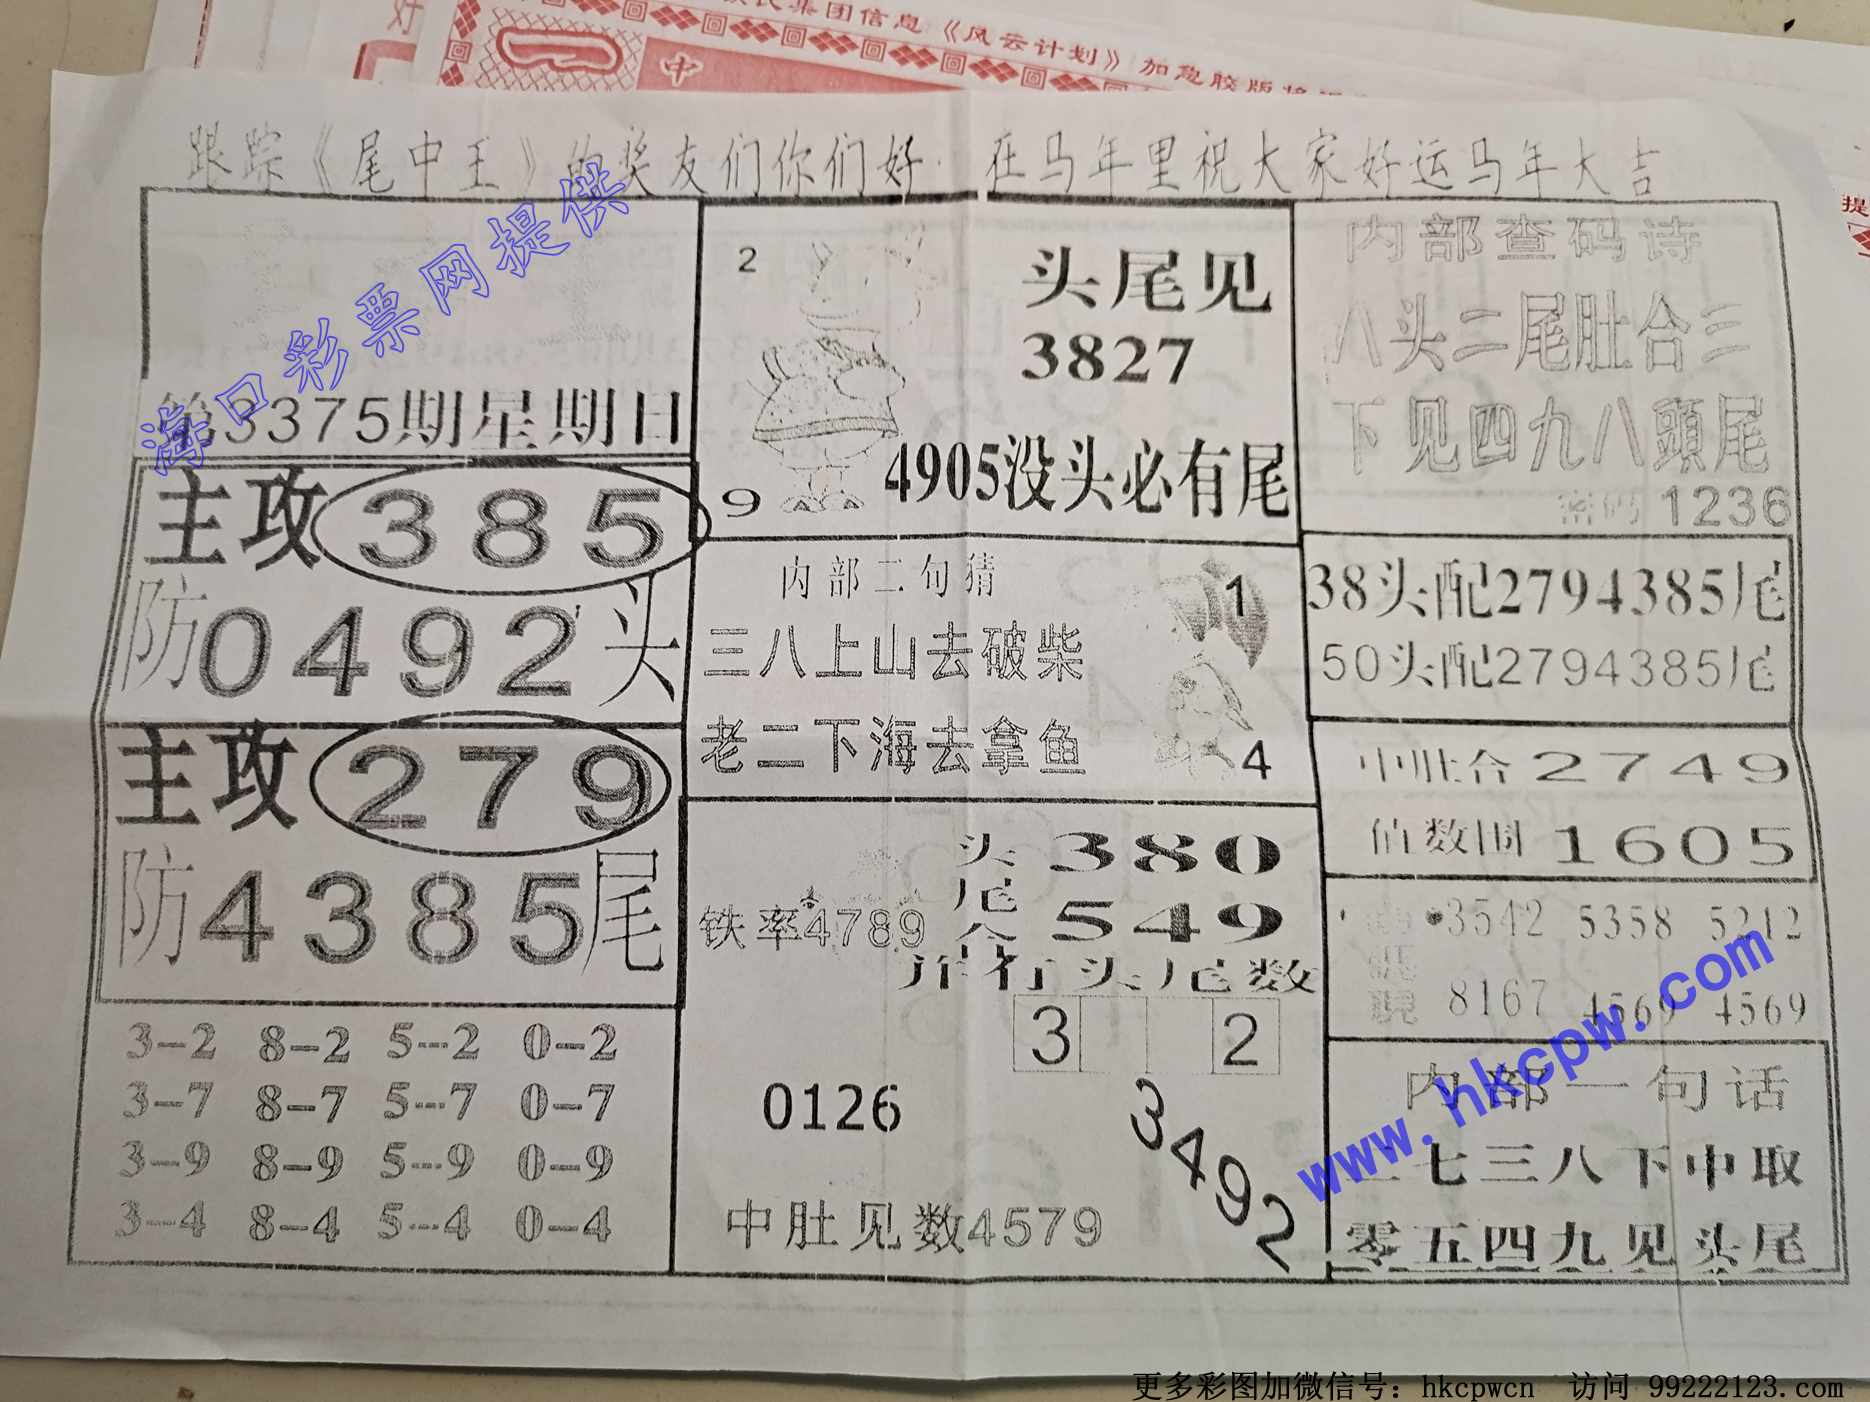 氏集团信息《风云计划》加急胶版
好
中
提
跟踪《尾中王》的奖友们你们好. 在马年里祝大家好运马年大吉
海口彩票网提供
第3375期星期日
主攻385
防0492头
主攻279
防4385尾
3-2 8-2 5--2 0-2
3-7 8-7 5--7 0-7
3-9 8-9 5--9 0-9
3-4 8-4 5--4 0-4
2
头尾见
3827
9
4905没头必有尾
内部二句猜
三八上山去破柴
老二下海去拿鱼
1
4
头 380
尾
合 549
铁率4789
并行头尾数
3 2
0126
3492
中肚见数4579
内部查码诗
八头二尾肚合三
下见四九八頭尾
密码1236
38头配2794385尾
50头配2794385尾
中肚合2749
值数围1605
3542 5358 5212
8167 4569 4569
内部一句话
二七三八下中取
零五四九见头尾
www.hkcpw.com
更多彩图加微信号：hkcpwcn 访问 99222123.com